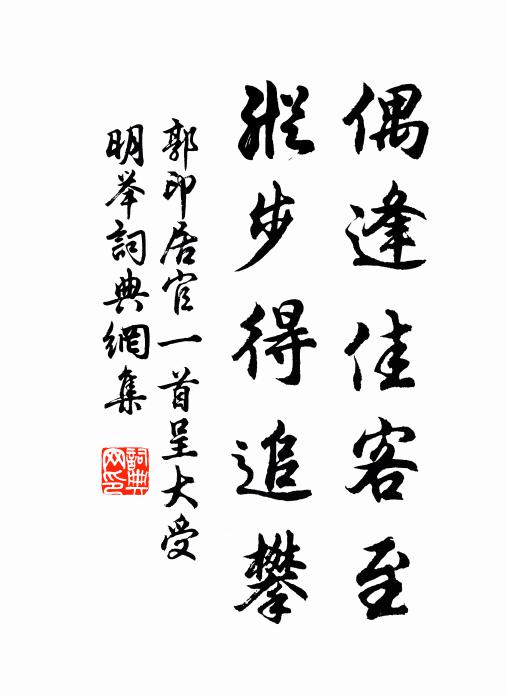 偶逢佳客至
縱步得追攀
郭印居官一首呈大受
明举詞典網集
詞典网印